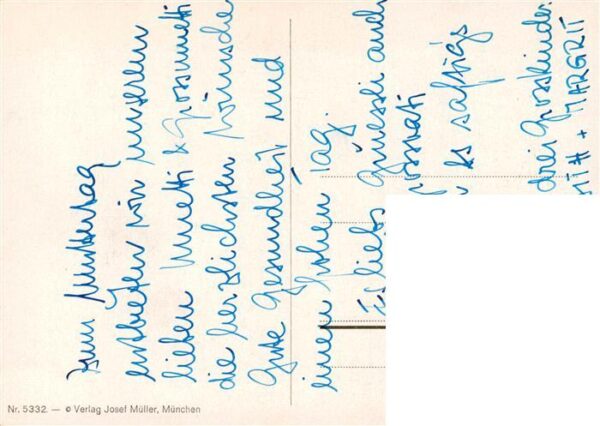 Zum Muttertag
entbieten wir unserem
lieben Muetti & Grossmuetti
die herzlichsten Wünsche
Gute Gesundheit und
einen frohen Tag.
Es liebs Grüessli auch
Grossvati
Es saftigs
drei Grosskinder
+ MARGRIT
Nr. 5332. — © Verlag Josef Müller, München